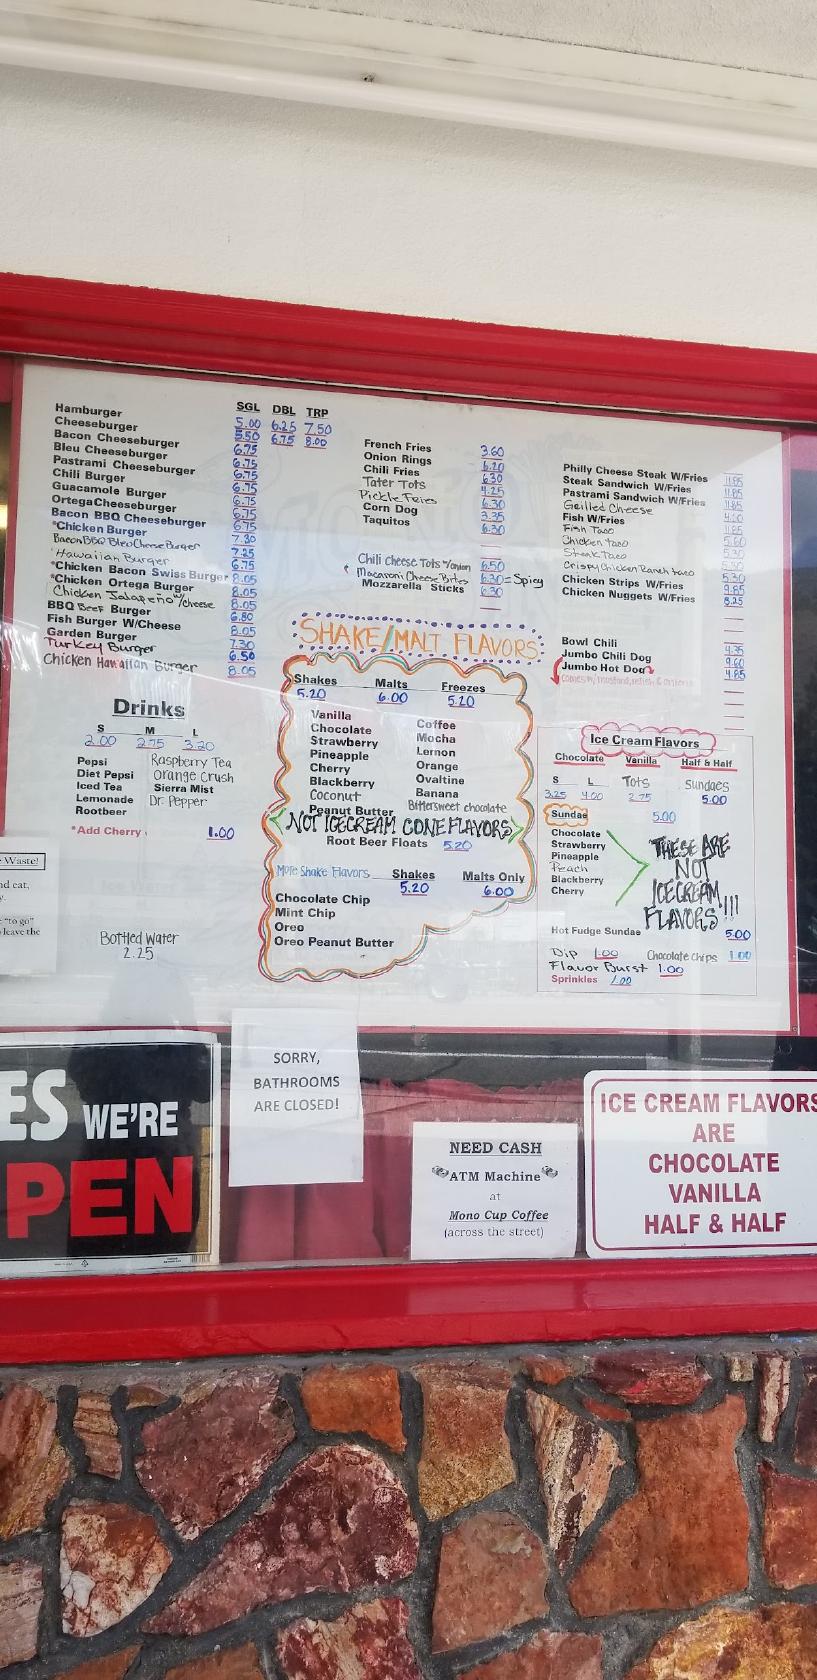 SGL DBL TRP
Hamburger 5.00 6.25 7.50
Cheeseburger 5.50 6.75 8.00
Bacon Cheeseburger 6.75
Bleu Cheeseburger 6.75
Pastrami Cheeseburger 6.75
Chili Burger 6.75
Guacamole Burger 6.75
Ortega Cheeseburger 6.75
Bacon BBQ Cheeseburger 6.75
*Chicken Burger 7.30
Bacon BBQ Bleu Cheese Burger 7.25
Hawaiian Burger 6.75
*Chicken Bacon Swiss Burger 8.05
*Chicken Ortega Burger 8.05
Chicken Jalapeño w/cheese 8.05
BBQ Beef Burger 6.80
Fish Burger W/Cheese 8.05
Garden Burger 7.30
Turkey Burger 6.50
Chicken Hawaiian Burger 8.05
Drinks
S M L
2.00 2.75 3.20
Pepsi
Diet Pepsi
Iced Tea
Lemonade
Rootbeer
Raspberry Tea
Orange Crush
Sierra Mist
Dr. Pepper
*Add Cherry 1.00
Bottled Water
2.25
French Fries 3.60
Onion Rings 6.20
Chili Fries 6.30
Tater Tots 4.25
Pickle Fries 6.30
Corn Dog 3.35
Taquitos 6.30
Chili Cheese Tots w/onion 6.50
Macaroni Cheese Bites 6.30 = Spicy
Mozzarella Sticks 6.30
SHAKE/MALT FLAVORS
Shakes Malts Freezes
5.20 6.00 5.20
Vanilla
Chocolate
Strawberry
Pineapple
Cherry
Blackberry
Coconut
Peanut Butter
Coffee
Mocha
Lemon
Orange
Ovaltine
Banana
Bittersweet chocolate
NOT ICECREAM CONE FLAVORS
Root Beer Floats 5.20
More Shake Flavors Shakes Malts Only
5.20 6.00
Chocolate Chip
Mint Chip
Oreo
Oreo Peanut Butter
Philly Cheese Steak W/Fries 11.85
Steak Sandwich W/Fries 11.85
Pastrami Sandwich W/Fries 11.85
Grilled Cheese
Fish W/Fries
Fish Taco
Chicken taco
Steak Taco
Crispy Chicken Ranch taco
Chicken Strips W/Fries 9.85
Chicken Nuggets W/Fries 8.25
Bowl Chili 4.75
Jumbo Chili Dog 9.60
Jumbo Hot Dog 4.85
comes w/ mustard, relish & onions
Ice Cream Flavors
Chocolate Vanilla Half & Half
S L Tots Sundaes
3.25 4.00 2.75 5.00
Sundae 5.00
Chocolate
Strawberry
Pineapple
Peach
Blackberry
Cherry
THESE ARE
NOT
ICECREAM
FLAVORS!!!
Hot Fudge Sundae 5.00
Dip 1.00 Chocolate chips 1.00
Flavor Burst 1.00
Sprinkles 1.00
Waste!
nd eat,
y.
"to go"
leave the
ES WE'RE
PEN
SORRY,
BATHROOMS
ARE CLOSED!
NEED CASH
ATM Machine
at
Mono Cup Coffee
(across the street)
ICE CREAM FLAVORS
ARE
CHOCOLATE
VANILLA
HALF & HALF